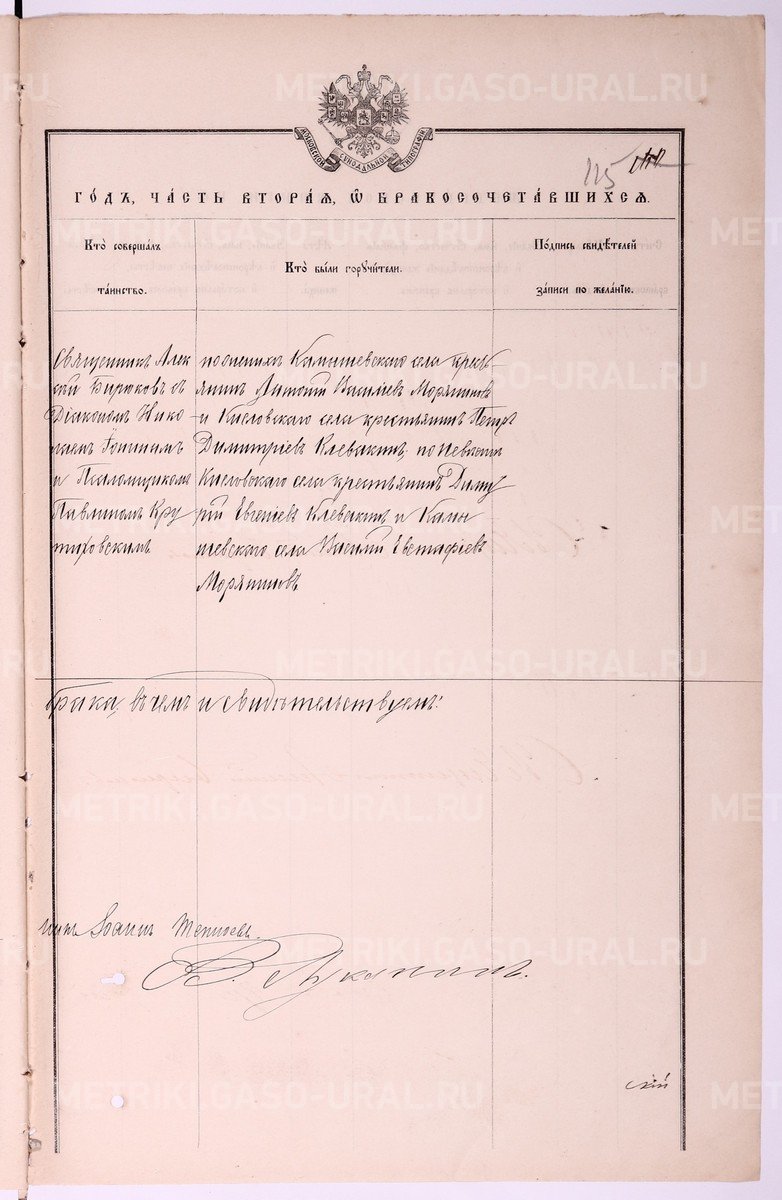 METRIKI.GASO-URAL.RU
МОСКОВСКОЙ СѴНОДАЛЬНОЙ ТИПОГРАФІИ
115
ГО́ДЪ, ЧА́СТЬ ВТОРА́Я, Ѡ БРАКОСОЧЕТА́ВШИХСЯ.
Кто̀ соверша́лъ
та́инство.
Кто̀ бы́ли поручи́тели.
По́дпись свидѣ́телей
за́писи по жела́нїю.
Священникъ Алек
сій Бирюковъ съ
Діакономъ Нико
лаемъ Іонинымъ
и Псаломщикомъ
Павлиномъ Кру
тиховскимъ
по женихѣ Камышевскаго села кресть
янинъ Антоній Василіевъ Морянинов
и Кисловскаго села крестьянинъ Петръ
Димитріевъ Клевакинъ, по невѣстѣ
Кисловскаго села крестьянинъ Димит
рій Евгеніевъ Клевакинъ и Камы
шевскаго села Василій Евстафіевъ
Моряниновъ
брака, въ чемъ и свидѣтельствуемъ:
Іоаннъ
В. Луканинъ.
скій